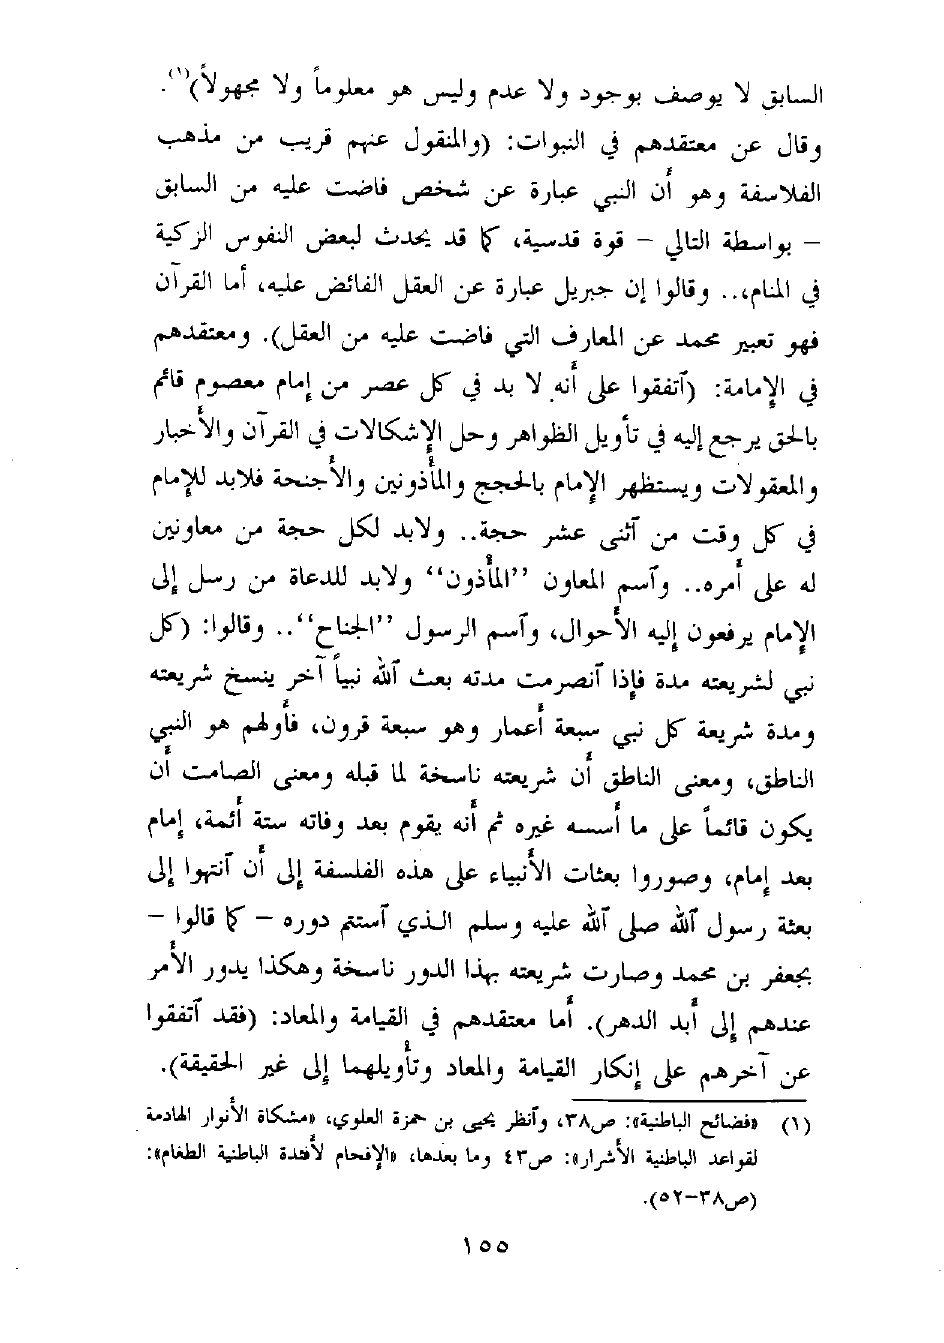 السابق لا يوصف بوجود ولا عدم وليس هو معلوماً ولا مجهولاً)(١).
وقال عن معتقدهم في النبوات: (والمنقول عنهم قريب من مذهب
الفلاسفة وهو أن النبي عبارة عن شخص فاضت عليه من السابق
- بواسطة التالي - قوة قدسية، كما قد يحدث لبعض النفوس الزكية
في المنام،.. وقالوا إن جبريل عبارة عن العقل الفائض عليه، أما القرآن
فهو تعبير محمد عن المعارف التي فاضت عليه من العقل). ومعتقدهم
في الإمامة: (آتفقوا على أنه لا بد في كل عصر من إمام معصوم قائم
بالحق يرجع إليه في تأويل الظواهر وحل الإشكالات في القرآن والأخبار
والمعقولات ويستظهر الإمام بالحجج والمأذونين والأجنحة فلابد للإمام
في كل وقت من آثنى عشر حجة.. ولابد لكل حجة من معاونين
له على أمره.. وآسم المعاون ”المأذون“ ولابد للدعاة من رسل إلى
الإمام يرفعون إليه الأحوال، وآسم الرسول ”الجناح“.. وقالوا: (كل
نبي لشريعته مدة فإذا آنصرمت مدته بعث آلله نبياً آخر ينسخ شريعته
ومدة شريعة كل نبي سبعة أعمار وهو سبعة قرون، فأولهم هو النبي
الناطق، ومعنى الناطق أن شريعته ناسخة لما قبله ومعنى الصامت أن
يكون قائماً على ما أسسه غيره ثم أنه يقوم بعد وفاته ستة أئمة، إمام
بعد إمام، وصوروا بعثات الأنبياء على هذه الفلسفة إلى أن آنتهوا إلى
بعثة رسول آلله صلى آلله عليه وسلم الذي آستتم دوره - كما قالوا -
بجعفر بن محمد وصارت شريعته بهذا الدور ناسخة وهكذا يدور الأمر
عندهم إلى أبد الدهر). أما معتقدهم في القيامة والمعاد: (فقد آتفقوا
عن آخرهم على إنكار القيامة والمعاد وتأويلهما إلى غير الحقيقة).
(١) «فضائح الباطنية»: ص٣٨، وآنظر يحيى بن حمزة العلوي، «مشكاة الأنوار الهادمة
لقواعد الباطنية الأشرار»: ص٤٣ وما بعدها، «الإفحام لأفئدة الباطنية الطغام»:
(ص٣٨-٥٢).
١٥٥